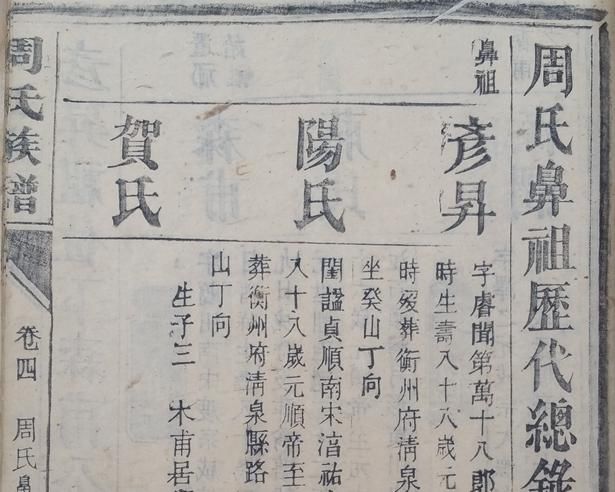 周氏鼻祖歷代總錄
鼻祖
彥昇
字睿聞第萬十八郎
時生壽八十八歲元
時歿葬衡州府清泉
坐癸山丁向
陽氏
閨謚貞順南宋淯祐
八十八歲元順帝至
葬衡州府清泉縣路
山丁向
賀氏
生子三 木甫居
周氏族譜
卷四 周氏鼻